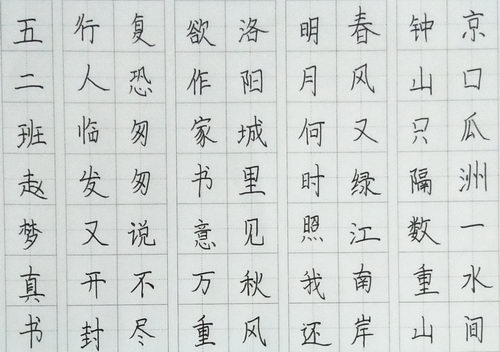 京口瓜洲一水间
钟山只隔数重山
春风又绿江南岸
明月何时照我还
洛阳城里见秋风
欲作家书意万重
复恐匆匆说不尽
行人临发又开封
五二班赵梦真书